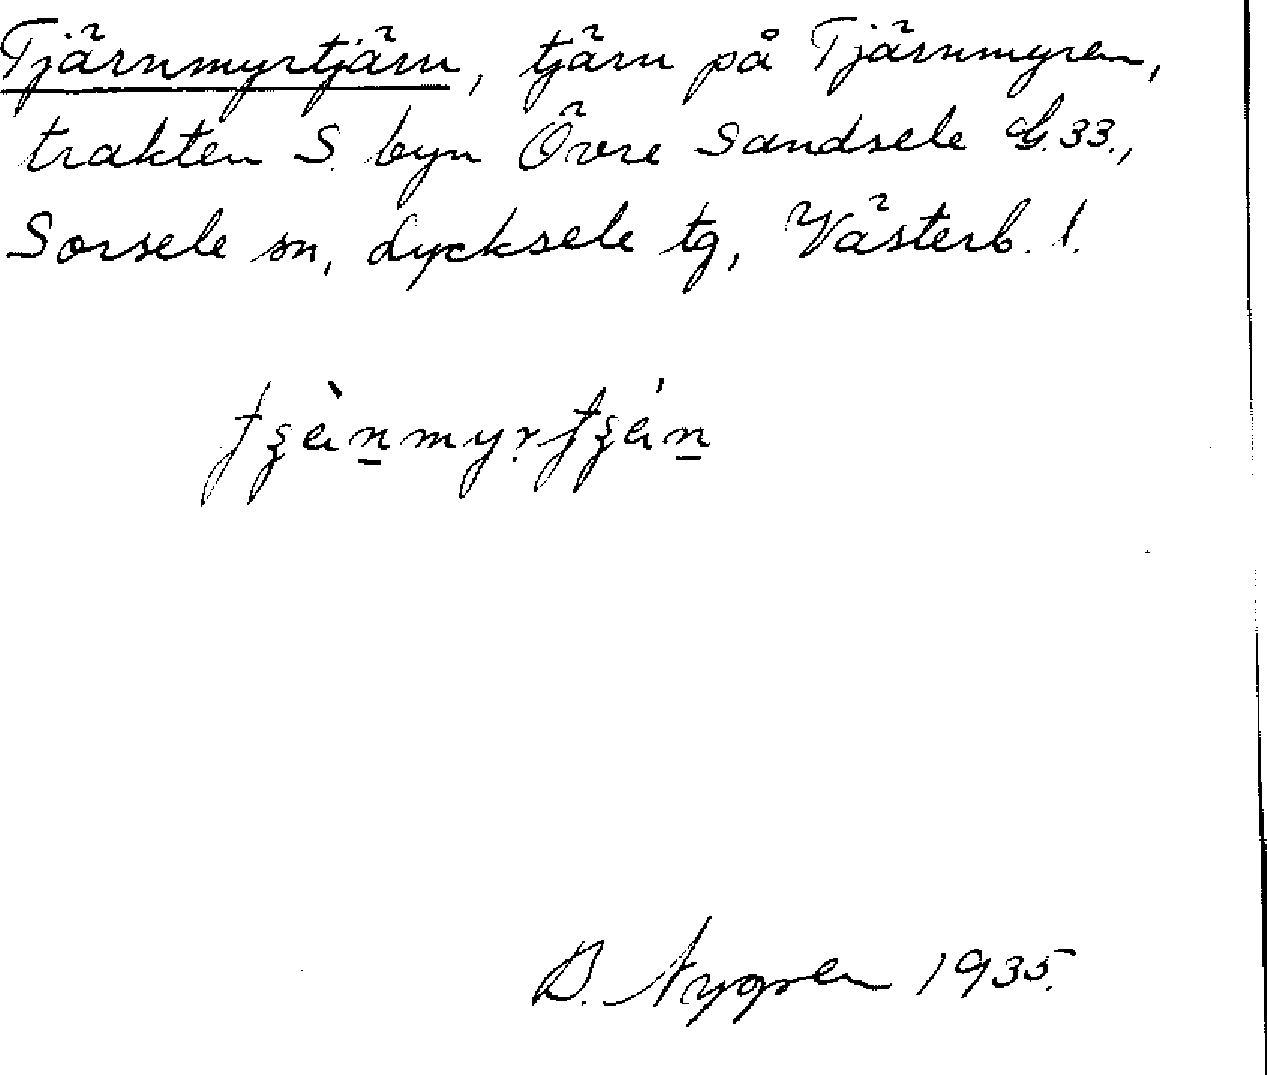 Tjärnmyrtjärn, tjärn på Tjärnmyren,
trakten S. byn Övre Sandsele G.33.,
Sorsele sn, Lycksele tg, Västerb. l.
B. Nygren 1935.